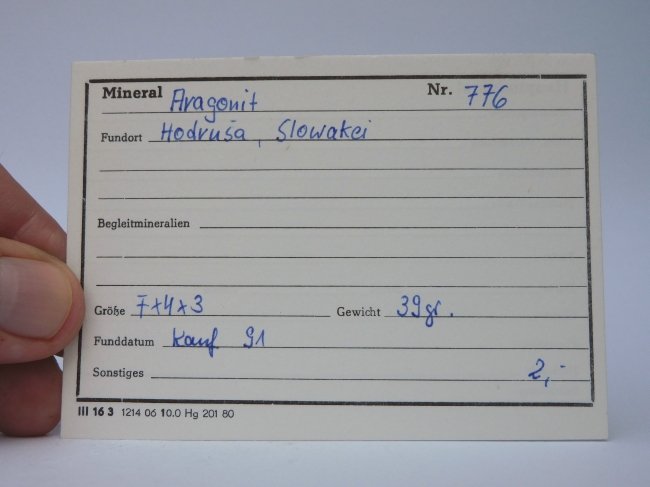 Mineral Aragonit Nr. 776
Fundort Hodruša, Slowakei
Begleitmineralien
Größe 7x4x3 Gewicht 39gr.
Funddatum Kauf 91
Sonstiges 2,-
III 16 3 1214 06 10.0 Hg 201 80